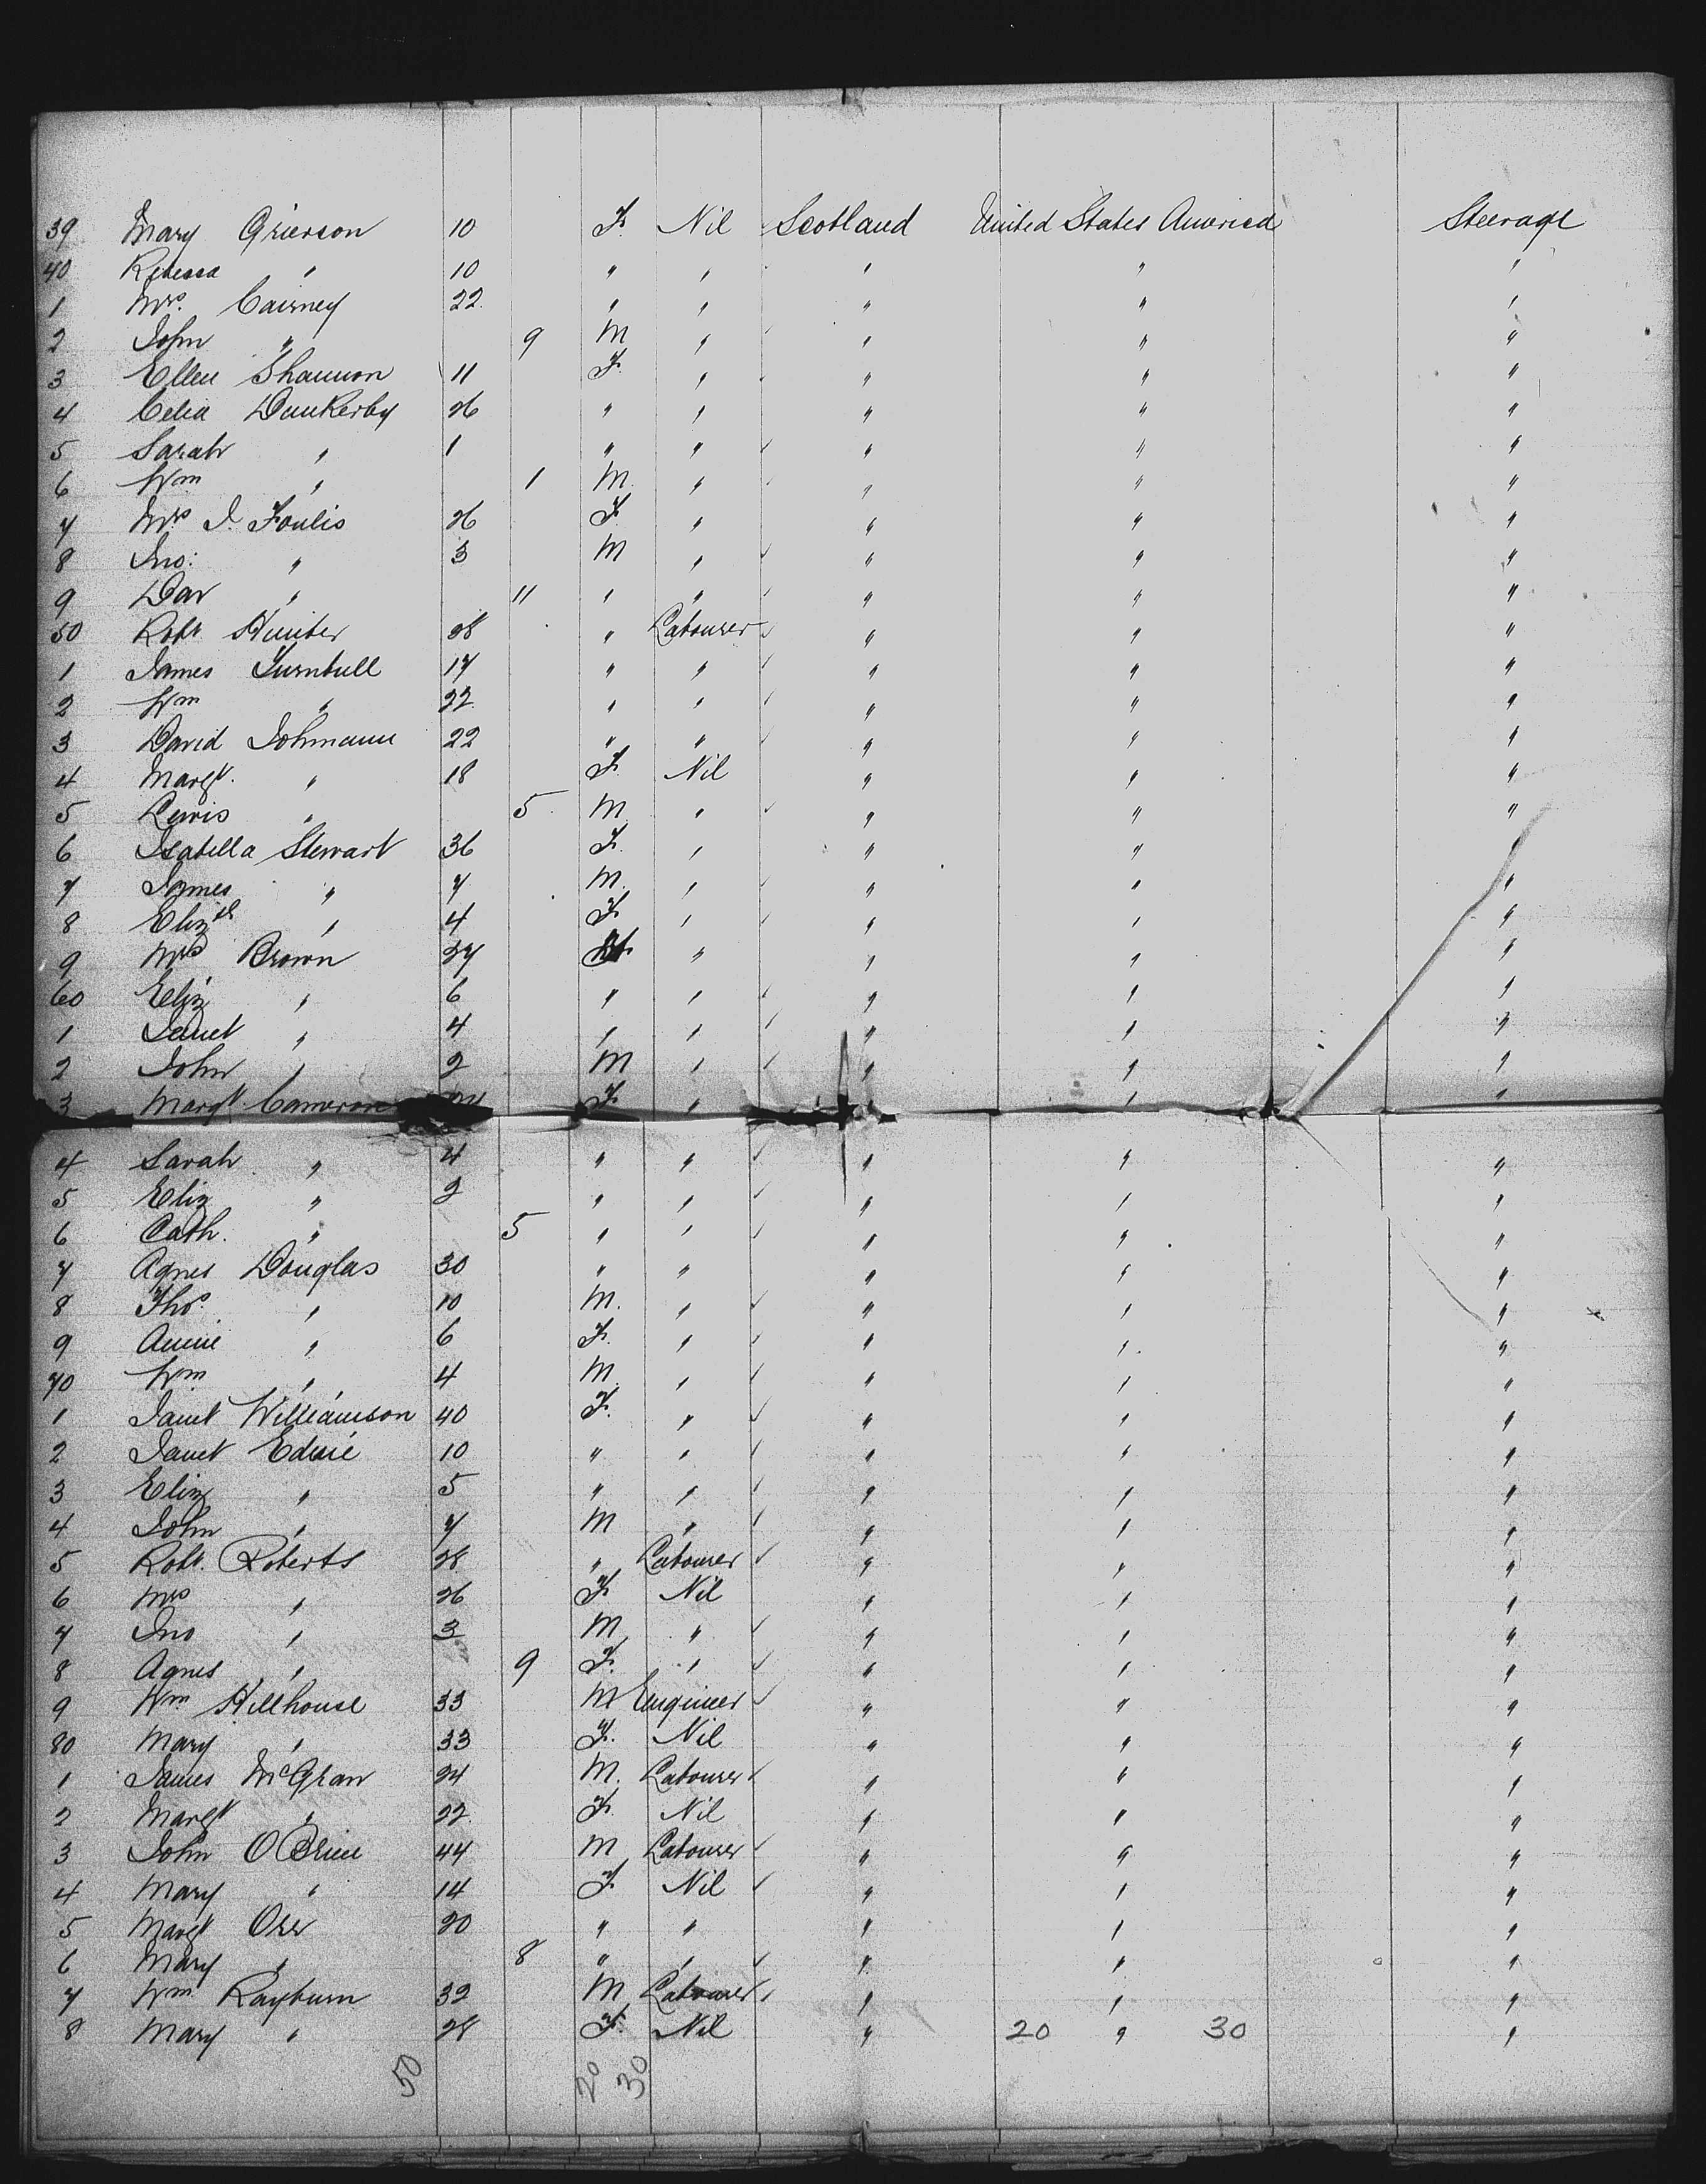 39 Mary Grierson 10 F. Nil Scotland United States America Steerage
40 Rebecca " 10 " " " " "
1 Mrs. Cairney 22 " " " " "
2 John " 9 M " " " "
3 Ellen Shannon 11 F. " " " "
4 Celia Dunkerby 26 " " " " "
5 Sarah " 1 " " " " "
6 Wm " 1 M. " " " "
7 Mrs J. Foulis 26 F. " " " "
8 Jno: " 3 M " " " "
9 Dav " 11 " " " " "
50 Robt. Hunter 28 " Labourer " " "
1 James Turnbull 17 " " " " "
2 Wm " 22 " " " " "
3 David Johmann 22 " " " " "
4 Margt. " 18 F. Nil " " "
5 Lewis " 5 M " " " "
6 Isabella Stewart 36 F. " " " "
7 James " 7 M. " " " "
8 Elizth " 4 F. " " " "
9 Mrs Brown 27 F " " " "
60 Eliz " 6 " " " " "
1 Janet " 4 " " " " "
2 John " 2 M " " " "
3 Margt. Cameron F. " " " "
4 Sarah " 4 " " " " "
5 Eliz " 2 " " " " "
6 Cath. " 5 " " " " "
7 Agnes Douglas 30 " " " " "
8 Thos. " 10 M. " " " "
9 Annie " 6 F. " " " "
70 Wm " 4 M " " " "
1 Janet Williamson 40 F. " " " "
2 Janet Edwie 10 " " " " "
3 Eliz " 5 " " " " "
4 John " 7 M " " " "
5 Robt. Roberts 28 " Labourer " " "
6 Mrs " 26 F. Nil " " "
7 Jno " 3 M " " " "
8 Agnes " 9 F. " " " "
9 Wm Hillhouse 33 M Engineer " " "
80 Mary " 33 F. Nil " " "
1 James McGraw 24 M. Labourer " " "
2 Margt " 22 F. Nil " " "
3 John OBrien 44 M Labourer " " "
4 Mary " 14 F. Nil " " "
5 Margt Orr 20 " " " " "
6 Mary " 8 " " " " "
7 Wm Rayburn 32 M Labourer " " "
8 Mary " 28 F. Nil " 20 " 30 "
50 20 30